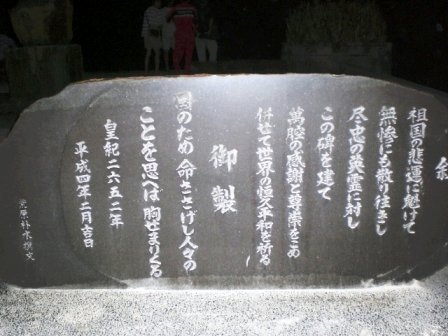 祖国の悲運に魁けて
無惨にも散り往きし
尽忠の英霊に対し
この碑を建て
萬腔の感謝と尊崇をこめ
併せて世界の恒久平和を祈る
御製
国のため 命ささげし人々の
ことを思へば 胸せまりくる
皇紀二六五二年
平成四年二月吉日